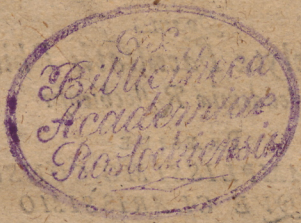 EX
Bibliotheca
Academiae
Rostochiensis